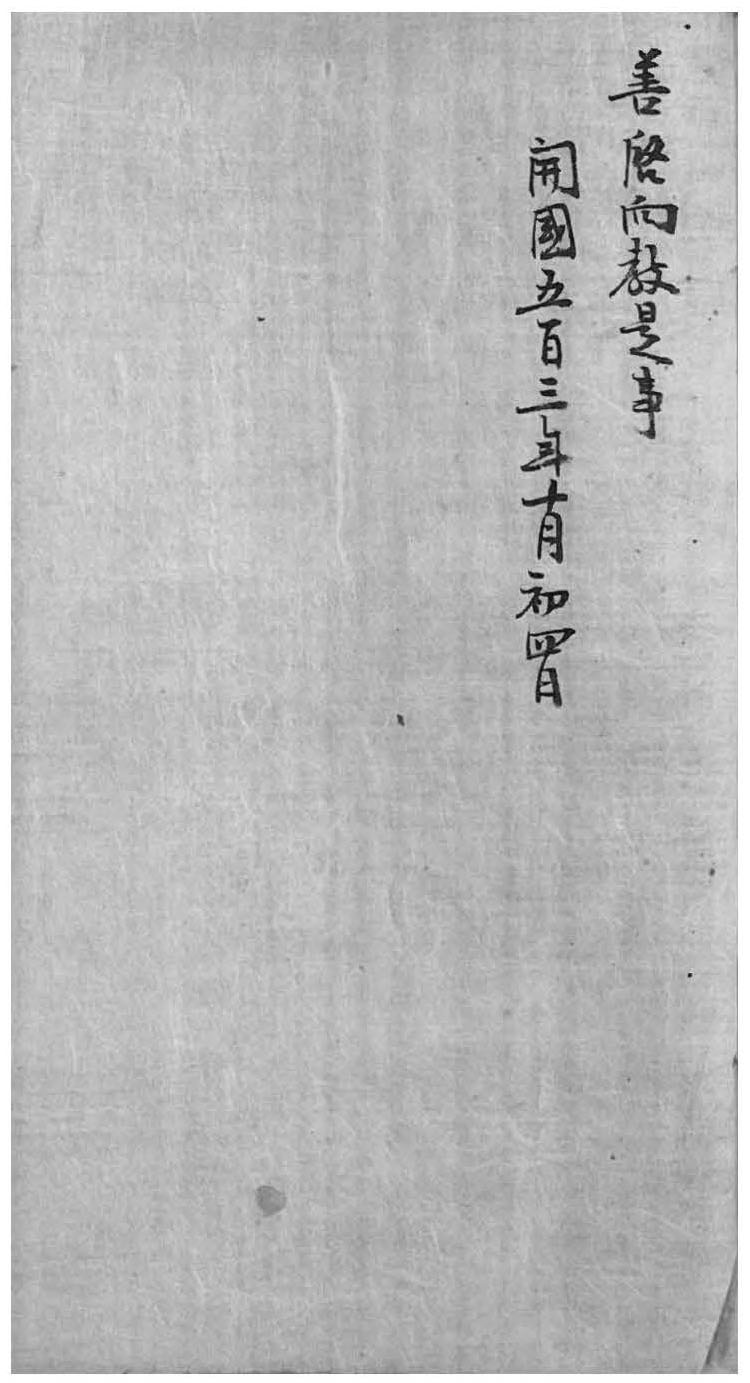 善啓向敎是事
開國五百三年十月初四日